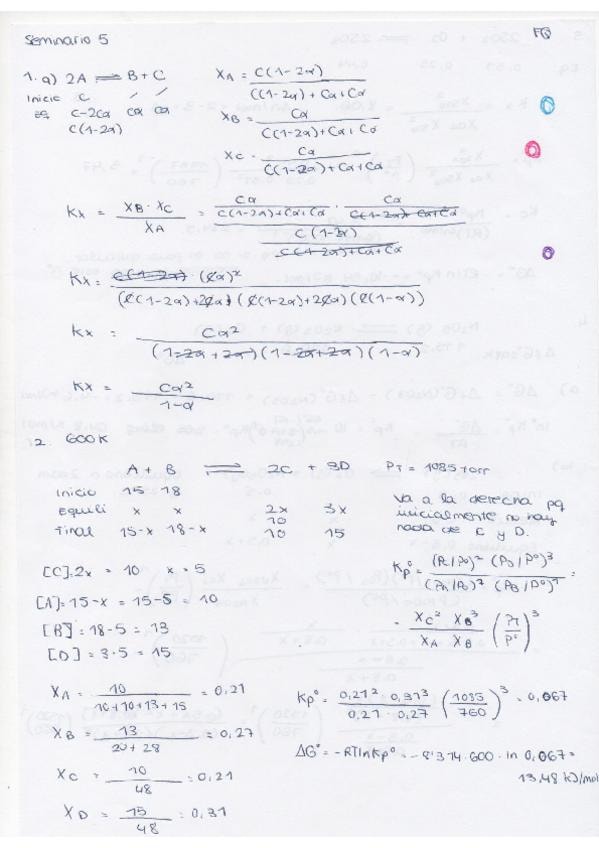 Seminario 5 FQ
1. a) 2A ⇌ B + C
Inicio C / /
eq C-2Cα Cα Cα
C(1-2α)
XA = C(1-2α) / C(1-2α)+Cα+Cα
XB = Cα / C(1-2α)+Cα+Cα
XC = Cα / C(1-2α)+Cα+Cα
Kx = XB · XC / XA = Cα / C(1-2α)+Cα+Cα · Cα / C(1-2α)+Cα+Cα
C(1-2α) / C(1-2α)+Cα+Cα
Kx = C(1-2α) · (Cα)² / (C(1-2α)+2Cα) (C(1-2α)+2Cα) (C(1-α))
Kx = Cα² / (1-2α+2α) (1-2α+2α) (1-α)
Kx = Cα² / 1-α
2. 600K
A + B ⇌ 2C + 3D PT = 1085 torr
Inicio 15 18
equili x x 2x 3x
10
final 15-x 18-x 10 15
Va a la derecha pq
inicialmente no hay
nada de C y D.
[C]: 2x = 10 x = 5
[A] = 15-x = 15-5 = 10
[B] = 18-5 = 13
[D] = 3·5 = 15
Kp° = (Pc/P°)² (PD/P°)³ / (PA/P°)² (PB/P°)² =
= XC² XB³ / XA XB (PT/P°)³
XA = 10 / 10+10+13+15 = 0,21
XB = 13 / 20+28 = 0,27
XC = 10 / 48 = 0,21
XD = 15 / 48 = 0,31
Kp° = 0,21² 0,31³ / 0,21 · 0,27 (1035/760)³ = 0,067
ΔG° = -RTlnKp° = -8'314·600·ln 0,067 =
13,48 kJ/mol